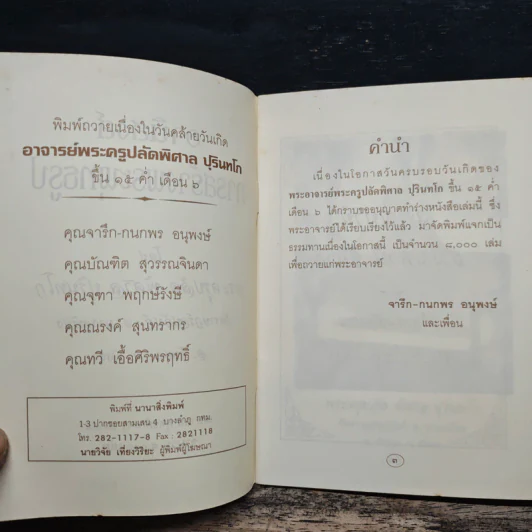 พิมพ์ถวายเนื่องในวันคล้ายวันเกิด
อาจารย์พระครูปลัดพิศาล ปุรินฺทโก
ขึ้น ๑๕ ค่ำ เดือน ๖
คุณจารึก-กนกพร อนุพงษ์
คุณบัณฑิต สุวรรณจินดา
คุณจุฑา พฤกษ์รังษี
คุณณรงค์ สุนทรากร
คุณทวี เอื้อศิริพรฤทธิ์
พิมพ์ที่ นานาสิ่งพิมพ์
1-3 ปากซอยสามเสน 4 บางลำภู กทม.
โทร. 282-1117-8 Fax. 2821118
นายวิจัย เที่ยงวิริยะ ผู้พิมพ์ผู้โฆษณา
คำนำ
เนื่องในโอกาสวันครบรอบวันเกิดของ
พระอาจารย์พระครูปลัดพิศาล ปุรินฺทโก ขึ้น ๑๕ ค่ำ
เดือน ๖ ได้กราบขออนุญาตทำร่างหนังสือเล่มนี้ ซึ่ง
พระอาจารย์ได้เรียบเรียงไว้แล้ว มาจัดพิมพ์แจกเป็น
ธรรมทานเนื่องในโอกาสนี้ เป็นจำนวน ๘,๐๐๐ เล่ม
เพื่อถวายแก่พระอาจารย์
จารึก-กนกพร อนุพงษ์
และเพื่อน
๓